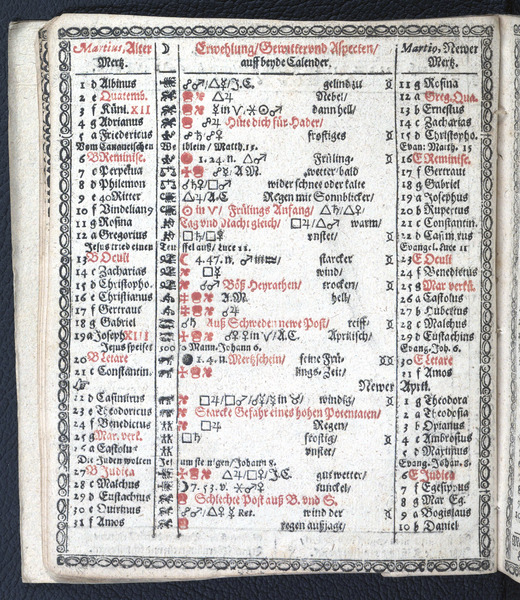 Martius, Alter Erwehlung/Gewitter und Aspecten/ Martio, Newer
Mertz. auff beyde Calender. Mertz.
1 d Albinus ☍♂/△☿/J.C. gelind zu 11 g Rosina
2 e Quatemb. △♃ Nebel/ 12 a Greg. Qua.
3 f Küni. XII ☿ in V/ ⚹☉♂ dann hell/ 13 b Ernestus
4 g Adrianus ☍♃ Hüte dich für Hader/ 14 c Zacharias
5 a Fridericus ☍♄/☍♀ frostiges 15 d Christopho.
Vom Cananeischen Weiblein/ Matth. 15. Evan: Matth. 15
6 B Reminisc. 1.24. n. △♂ Früling- 16 E Reminisc.
7 c Perpetua ☍☿. A.M. wetter/bald 17 f Gertraut
8 d Philemon ☌♄♀/□♂ wider schnee oder kalte 18 g Gabriel
9 e 40 Ritter △♃/A.C Regen mit Sonnblicker/ 19 a Josephus
10 f Vindelian9 ☉ in V/ Frülings Anfang/ △♄/△♀/ 20 b Rupertus
11 g Rosina Tag und Nacht gleich/ □♃/△♂ warm/ 21 c Constantin.
12 a Gregorius □♄/□♀ unstet/ 22 d Casimirus
Jesus trieb einen Teuffel auß/ Luce 11. Evangel. Luce 11
13 B Oculi ☾ 4.47. n. ♂ in ♒/ starcker 23 E Oculi
14 c Zacharias □☿ wind/ 24 f Benedictus
15 d Christopho. ☍♂ Böß Heyrathen/ trocken/ 25 g Mar verkü.
16 e Christianus A.M. hell/ 26 a Castolus
17 f Gertraut ☍♃ 27 b Hubertus
18 g Gabriel ☌♄ Auß Schweden newe Post/ reiff- 28 c Malchus
19 a Joseph XIII ☌☿♀ in V/A.C. Aprilisch/ 29 d Eustachius
Jesus speiset 5000 Mann. Johann 6. Evang. Joh. 6.
20 B Letare 1.4. n. Mertzschein/ feine Frü- 30 E Letare
21 c Constantin. lings-Zeit/ 31 f Amos
Newer April.
22 d Casimirus □♃/□♂/ in ♉/ windig/ 1 g Theodora
23 e Theodoricus Starcke Gefahr eines hohen Potentaten/ 2 a Theodosia
24 f Benedictus □♃ Regen/ 3 b Opianus
25 g Mar. verk. □♄ frostig/ 4 c Ambrosius
26 a Castolus unstet/ 5 d Maximus
Die Juden wolten Jesum steinigen/ Johann 8. Evang. Johan. 8.
27 B Judica △♃/□♀/J.C. gut wetter/ 6 E Judica
28 c Malchus ☽ 7.53. v. ⚹♂♀ tunckel/ 7 f Egesippus
29 d Eustachius Schlechte Post auß B. und S. 8 g Mar Eg.
30 e Quirinus ☍♂/△☿♀ Ret. wind der 9 a Bogislaus
31 f Amos regen außjage/ 10 b Daniel